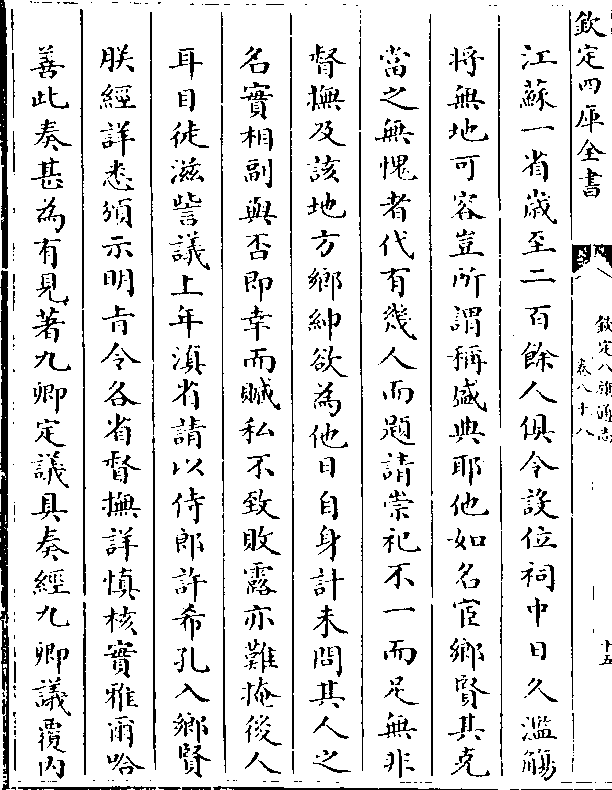 欽定四庫全書
欽定八旗通志
卷八十八
十五
江蘇一省歳至二百餘人俱令設位祠中日久濫觴
將無地可容豈所謂稱盛典耶他如名宦鄉賢其克
當之無愧者代有幾人而題請崇祀不一而足無非
督撫及該地方鄉紳欲為他日自身計未問其人之
名實相副與否即幸而贓私不致敗露亦難掩後人
耳目徒滋訾議上年滇省請以侍郎許希孔入鄉賢
朕經詳悉頒示明㫖令各省督撫詳慎核實雅爾哈
善此奏甚為有見著九卿定議具奏經九卿議覆内